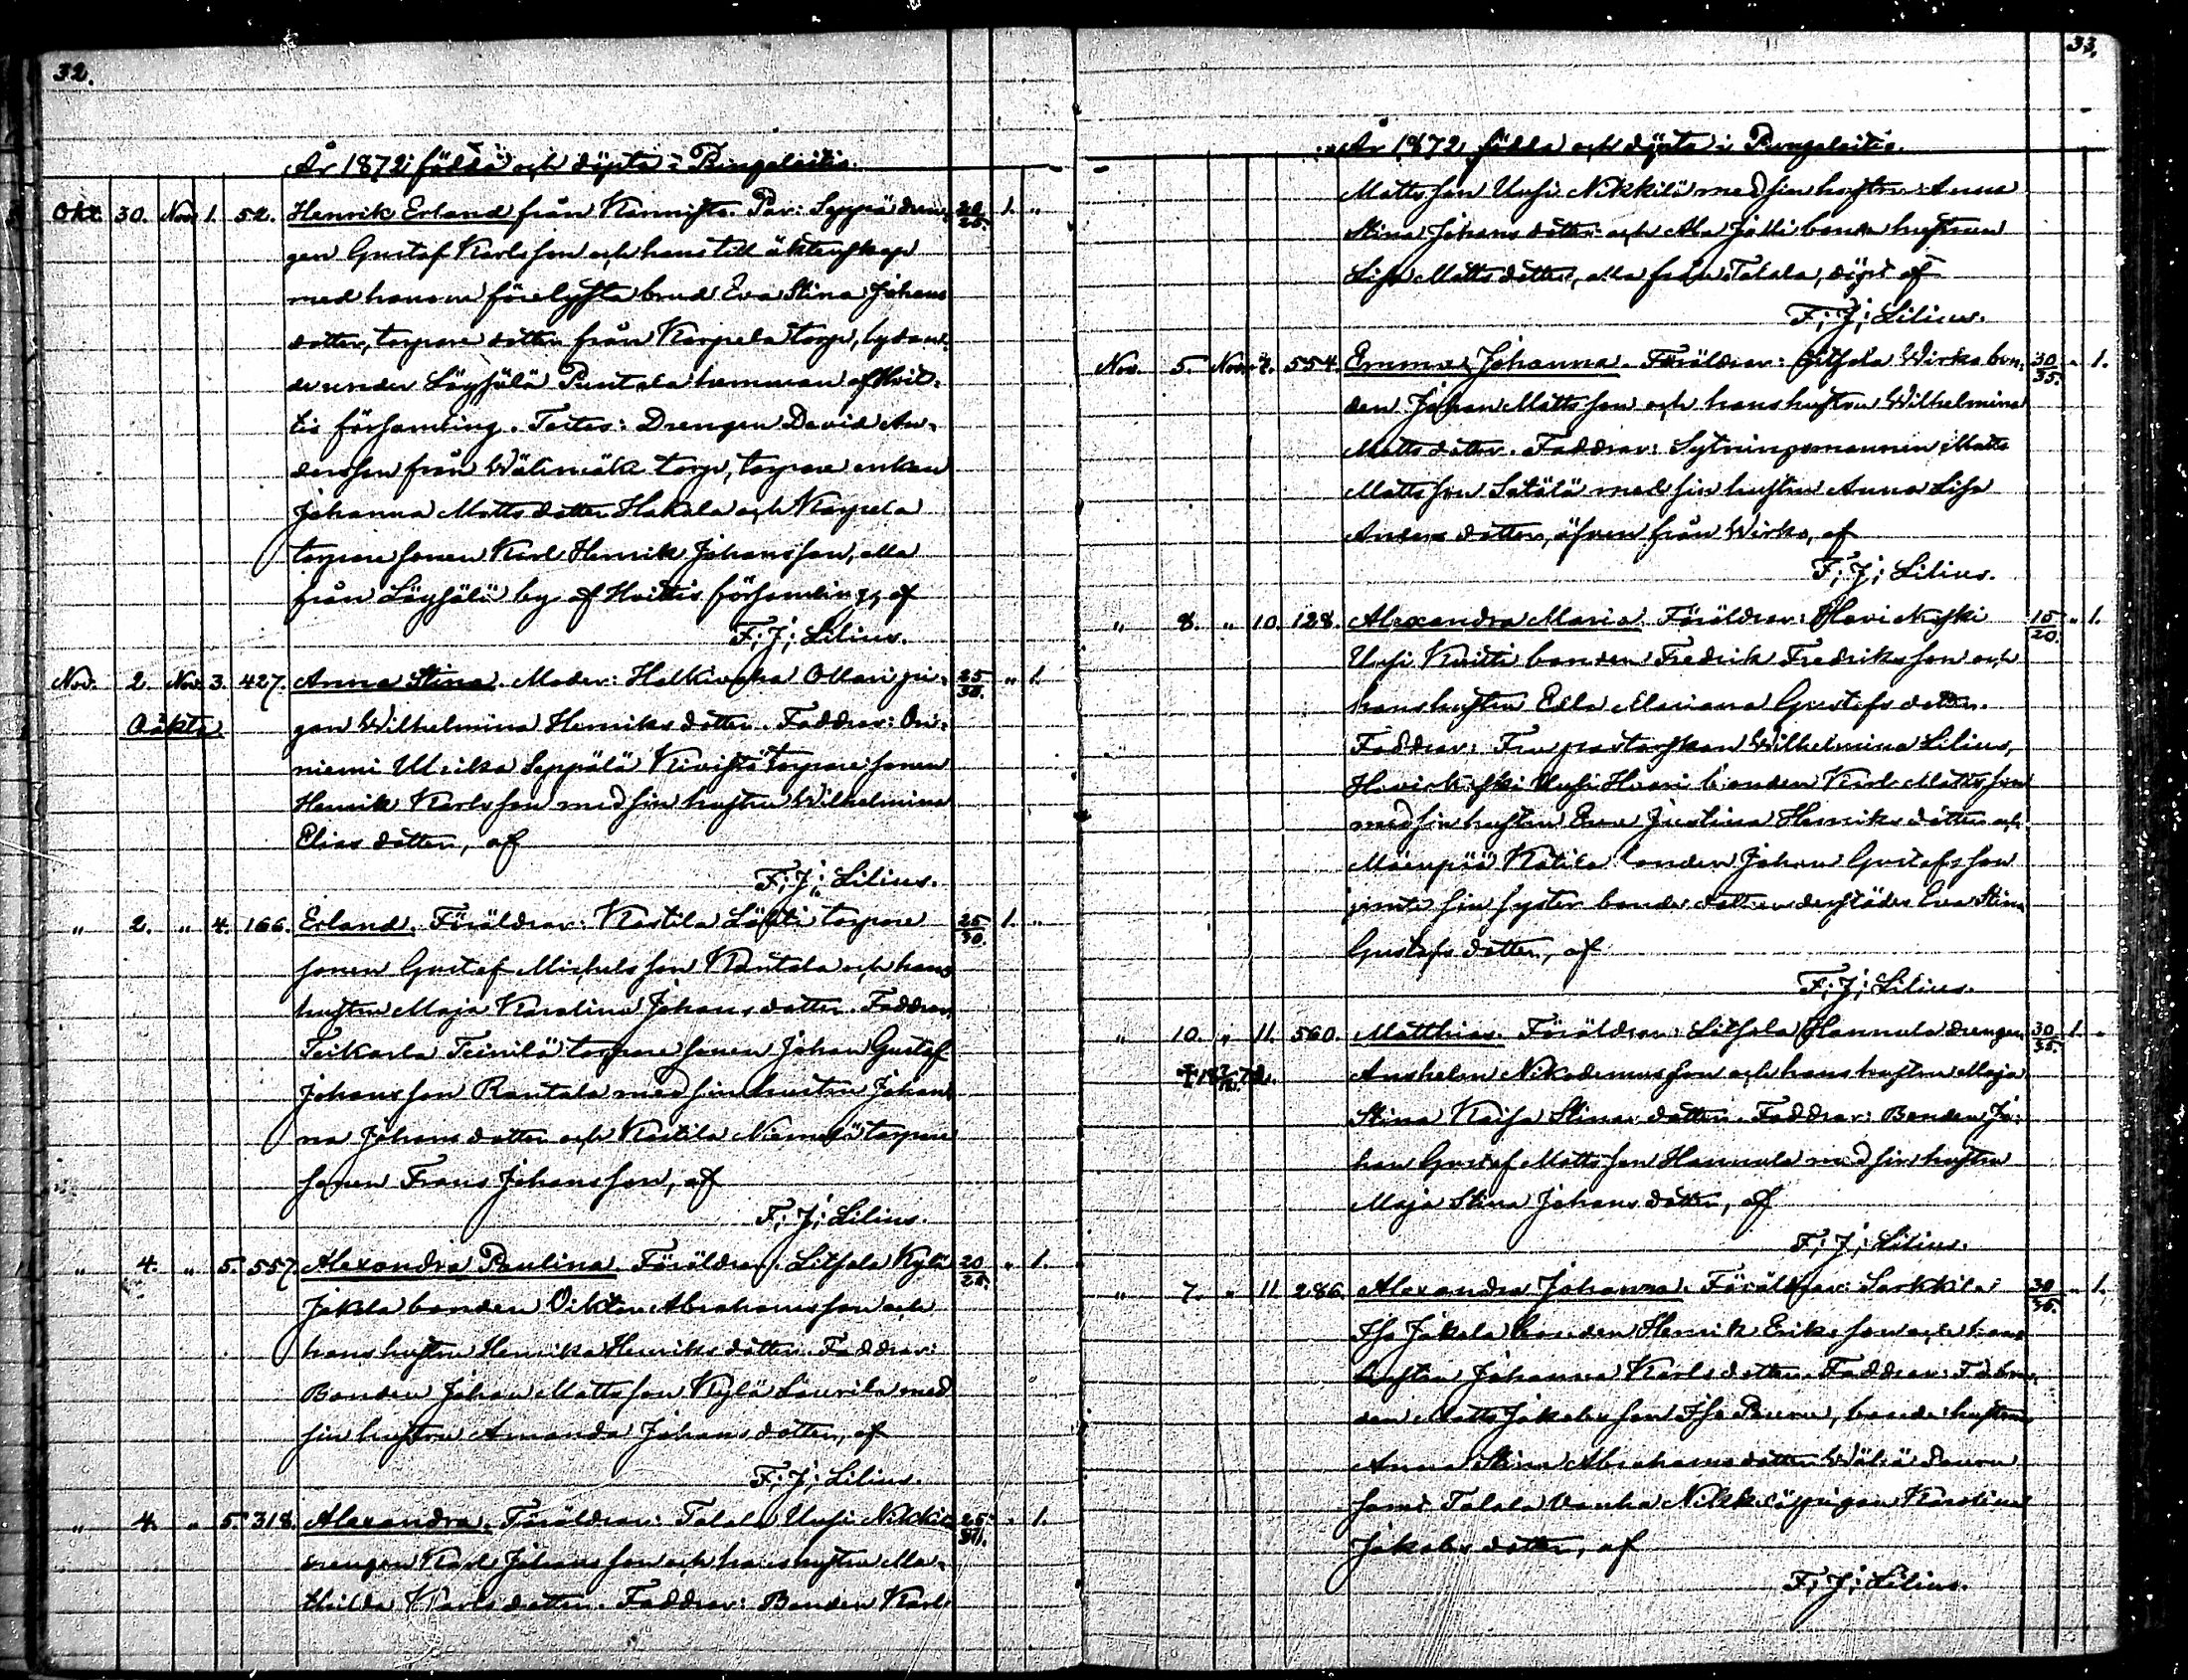 32.
År 1872 födda och döpta i Pungalaitio.
Okt. 30. Nov. 1. 52. Henrik Erland från Kannisto. Par: Seppä dren- 20/25. 1. "
gen Gustaf Karlsson och hans till äktenskap
med honom förelysta brud Eva Stina Johans
dotter, torpare dotter från Karpela torp, lydan-
de under Löysälä Puntala hemman af Hvit-
tis församling. Testes: Drengen David An-
dersson från Wälimäki torp, torpare enkan
Johanna Matts dotter Hakala och Karpela
torpare sonen Karl Henrik Johansson, alla
från Löysälä by af Hvittis församling, af
F; J; Lilius.
Nov. 2. Nov. 3. 427. Anna Stina. Moder: Halkivaha Ollari pi- 25/30. " 1.
Oäkta. gan Wilhelmina Henriks dotter. Faddrar: Ori-
niemi Ulrika Seppälä Kivistö torpare sonen
Henrik Karlsson med sin hustru Wilhelmina
Elias dotter, af
F; J; Lilius.
" 2. " 4. 166. Erland. Föräldrar: Kostila Lähti torpare 25/30. 1. "
sonen Gustaf Michelsson Rautala och hans
hustru Maja Karolina Johans dotter. Faddrar:
Teikarla Teinilä torpare sonen Johan Gustaf
Johansson Rautala med sin hustru Johan-
na Johans dotter och Kostila Niemelä torpare
sonen Frans Johansson, af
F; J; Lilius.
" 4. " 5. 557. Alexandra Paulina. Föräldrar: Litsola Kylä 20/25. " 1.
Jakola bonden Viktor Abrahamsson och
hans hustru Henrika Henriks dotter. Faddrar:
Bonden Johan Mattsson Kylä Laurila med
sin hustru Amanda Johans dotter, af
F; J; Lilius.
" 4. " 5. 318. Alexandra. Föräldrar: Talala Uusi Nikkilä 25/30. " 1.
drengen Karl Johansson och hans hustru Ma-
thilda Karls dotter. Faddrar: Bonden Karl
33.
År 1872 födda och döpta i Pungalaitio.
Mattsson Uusi Nikkilä med sin hustru Anna
Stina Johans dotter och Ala Jalli bonde hustrun
Lisa Matts dotter, alla från Talala, döpt af
F; J; Lilius.
Nov. 5. Nov. 7. 554. Emma Johanna. Föräldrar: Litsola Wirko bon- 30/35. " 1.
den Johan Mattsson och hans hustru Wilhelmina
Matts dotter. Faddrar: Sytningsmannen Matts
Mattsson Satälä med sin hustru Anna Lisa
Anders dotter, äfven från Wirko, af
F; J; Lilius.
" 8. " 10. 128. Alexandra Maria. Föräldrar: Havi
Uusi Knitti bonden Fredrik Fredriksson och 15/20. " 1.
hans hustru Edla Mariana Gustafs dotter.
Faddrar: Fru pastorskan Wilhelmina Lilius,
Uusi Havi bonden Karl Mattsson
med sin hustru Eva Justina Henriks dotter och
Mäenpää Kätilä bonden Johan Gustafsson
jemte sin syster bonde dottren derstädes Eva Stina
Gustafs dotter, af
F; J; Lilius.
" 10. " 11. 560. Matthias. Föräldrar: Litsola Hannula drengen 30/35. 1. "
Anshelm Nikodemusson och hans hustru Maja
Stina Kaisa Stinas dotter. Faddrar: Bonden Jo-
han Gustaf Mattsson Hannula med sin hustru
Maja Stina Johans dotter, af
F; J; Lilius.
" 7. " 11. 286. Alexandra Johanna. Föräldrar: Sarkkila 30/35. " 1.
Iso Jakola bonden Henrik Eriksson och hans
hustru Johanna Karls dotter. Faddrar: Fd bon-
den Matts Jakobsson Iso Pauru, bonde hustrun
Anna Stina Abrahams dotter Wäliä Pauru
samt Talala Vanha Nikkilä pigan Karolina
Jakobs dotter, af
F; J; Lilius.